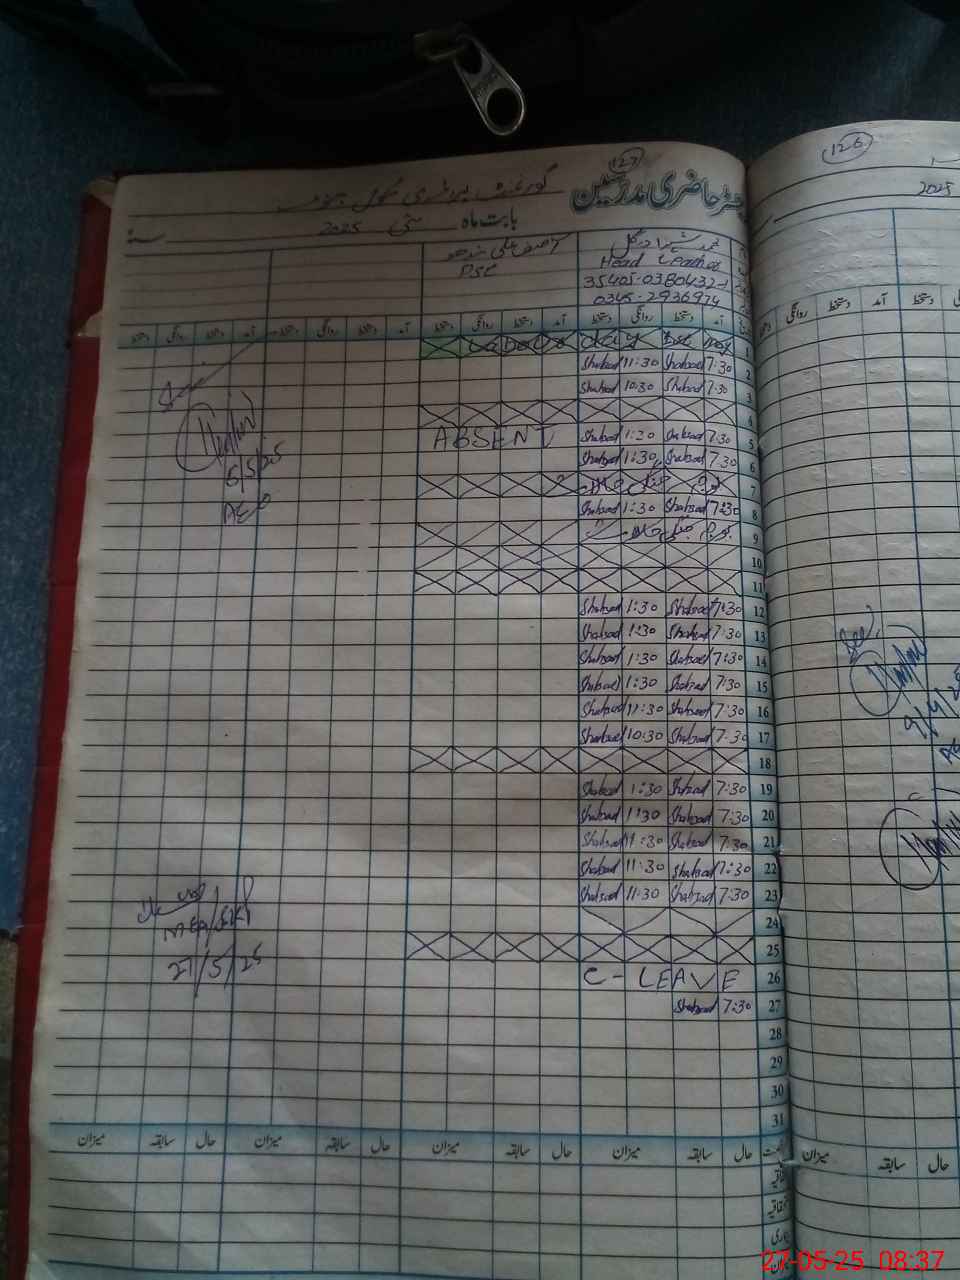 127
رجسٹر حاضری مدرسین
گورنمنٹ پرائمری سکول
بابت ماہ مئی 2025 سنہ
محمد شہزاد گل
Head Teacher
35405-0380432-1
0345-2936974
آصف علی
PST
آمد دستخط روانگی دستخط آمد دستخط روانگی دستخط آمد دستخط روانگی دستخط آمد دستخط روانگی دستخط
1 Labour day 1st May
2 7:30 Shahzad 11:30 Shahzad
3 7:30 Shahzad 10:30 Shahzad
4
5 7:30 Shahzad 1:30 Shahzad ABSENT
6 7:30 Shahzad 1:30 Shahzad
7 بوجہ جنگی حالات
8 7:30 Shahzad 1:30 Shahzad
9 بوجہ جنگی حالات
10
11
12 7:30 Shahzad 1:30 Shahzad
13 7:30 Shahzad 1:30 Shahzad
14 7:30 Shahzad 1:30 Shahzad
15 7:30 Shahzad 1:30 Shahzad
16 7:30 Shahzad 11:30 Shahzad
17 7:30 Shahzad 10:30 Shahzad
18
19 7:30 Shahzad 1:30 Shahzad
20 7:30 Shahzad 11:30 Shahzad
21 7:30 Shahzad 11:30 Shahzad
22 7:30 Shahzad 11:30 Shahzad
23 7:30 Shahzad 11:30 Shahzad
24
25
26 C-LEAVE
27 7:30 Shahzad
28
29
30
31
حال سابقہ میزان حال سابقہ میزان حال سابقہ میزان حال سابقہ میزان
5/5/25
AEO
MEA/SKP
27/5/25
126
2025
آمد دستخط روانگی
See
9/4/25
حال سابقہ میزان
27-05-25 08:37